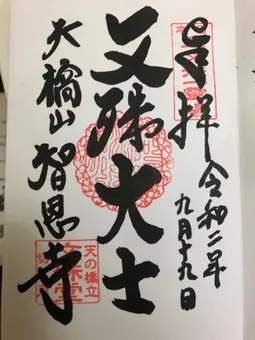 奉拝 令和二年
九月十九日
文殊大士
天橋山智恩寺
天の橋立
文殊堂